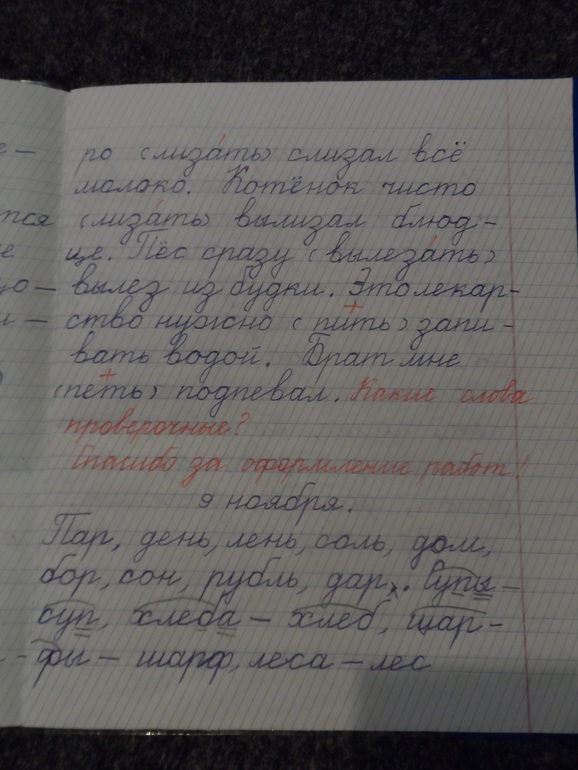 е — ро (лизать) слизал всё
молоко. Котёнок чисто
тся (лизать) вылизал блюд-
е це. Пёс сразу (вылезать)
— вылез из будки. Это лекар-
— ство нужно (пить) запи-
вать водой. Брат мне
) (петь) подпевал. Какие слова
проверочные?
Спасибо за оформление работ!
9 ноября.
Пар, день, лень, соль, дом,
бор, сон, рубль, дар,. Супы –
суп, хлеба – хлеб, шар-
- фы – шарф, леса – лес